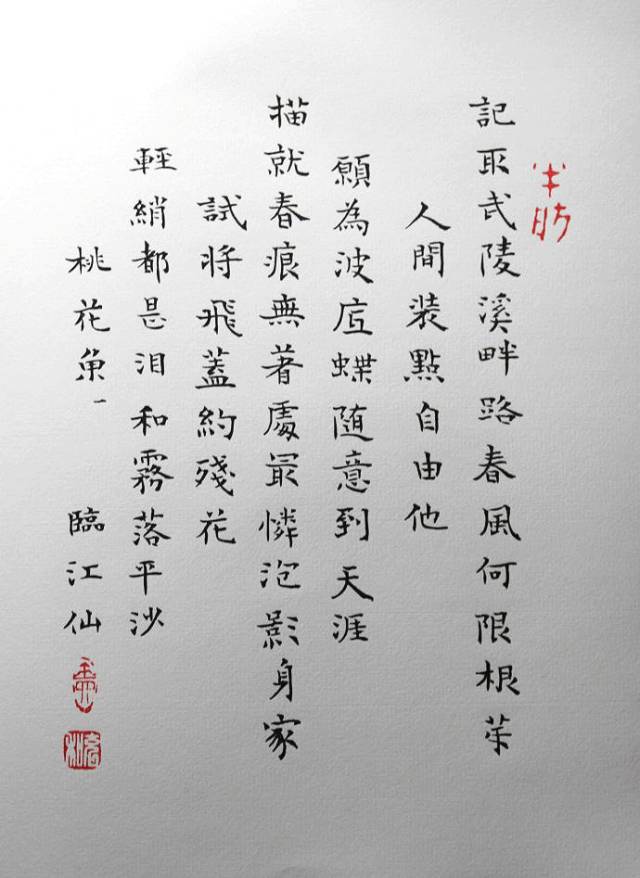 記取武陵溪畔路春風何限根芽
人間装點自由他
願為波底蝶随意到天涯
描就春痕無著處最憐泡影身家
試将飛蓋約殘花
輕綃都是泪和霧落平沙
桃花魚一 臨江仙